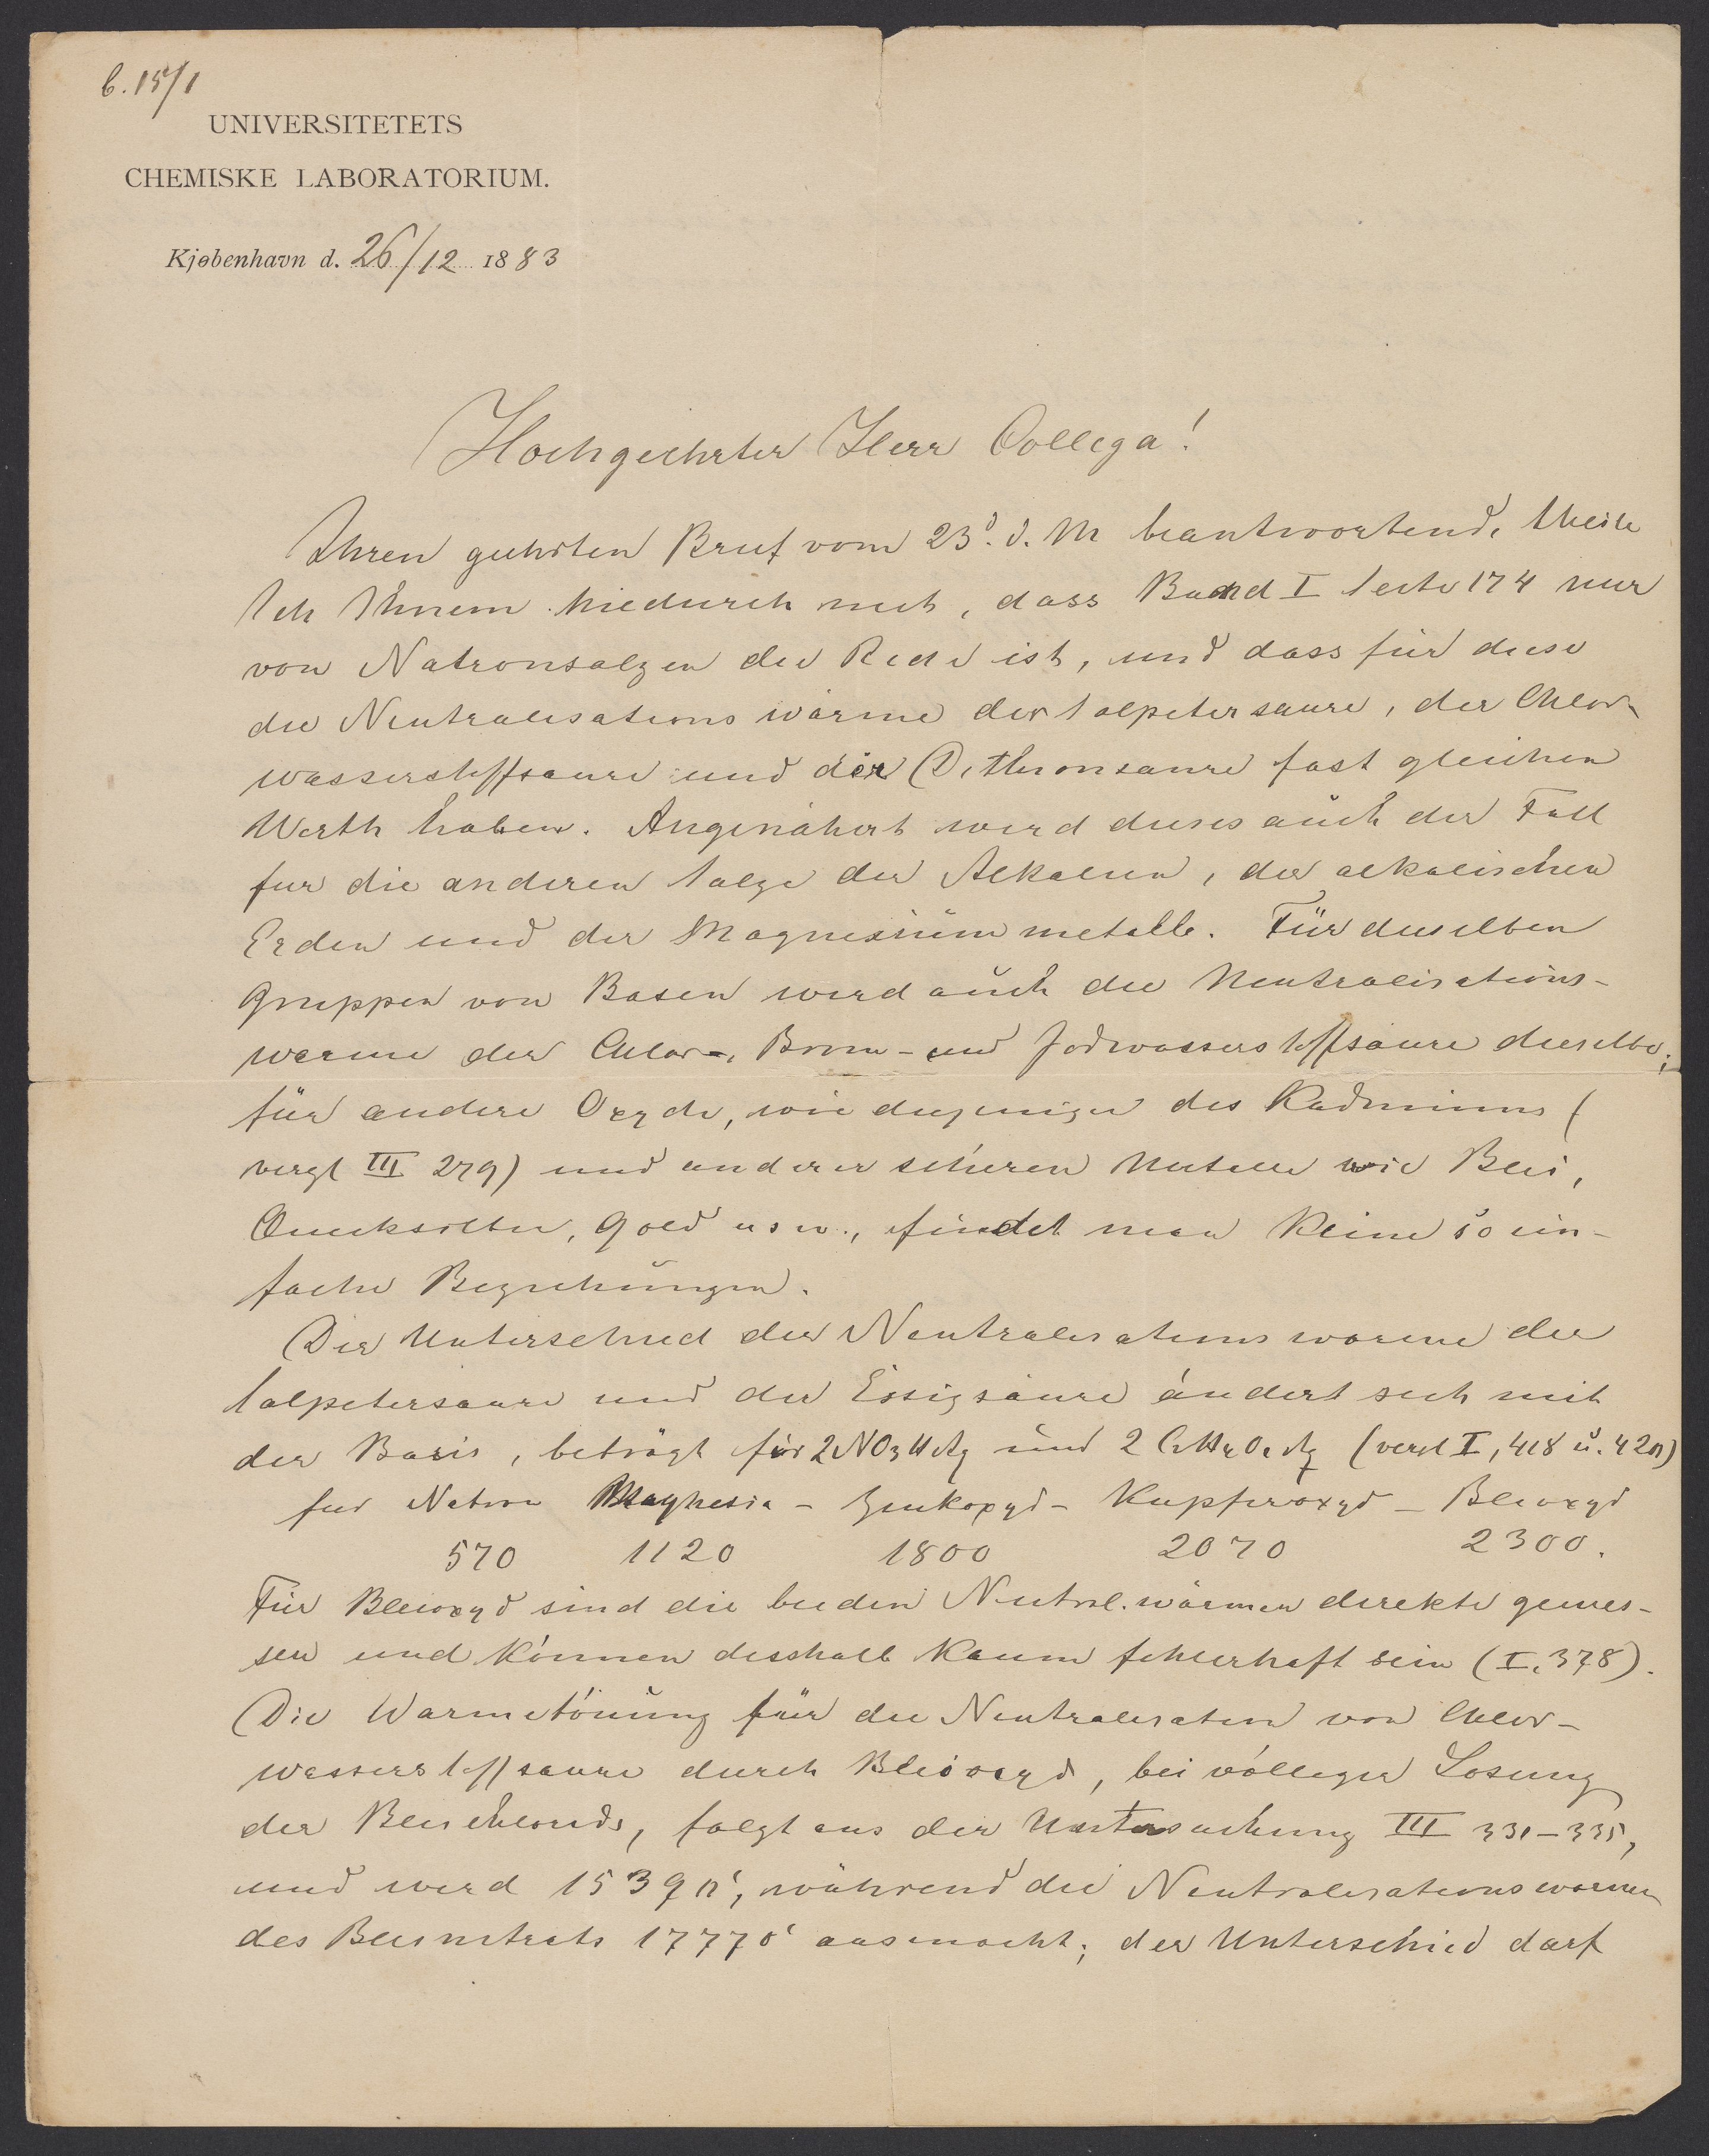 b. 15/1
UNIVERSITETETS
CHEMISKE LABORATORIUM.
Kjøbenhavn d. 26/12 1883
Hochgeehrter Herr Collega!
Ihren geehrten Brief vom 23d. d. M beantwortend, theile
Ich Ihnem hiedurch mit, dass Band I Seite 174 nur
von Natronsalzen die Rede ist, und dass für diese
die Neutralisations wärme der Salpetersaure, der Chlor-
wasserstoffsaure und der Dithionsaure fast gleichen
Werth haben. Angenähert wird dieses auch der Fall
fur die anderen Salze der Alkalien, der alkalischen
Erden und der Magnesium metalle. Für dieselben
Gruppen von Basen wird auch die Neutralisations-
warme der Chlor-, Brom- und Jodwasserstoffsäure dieselbe;
für andere Oxyde, wie diejenigen des Kadmiums (
vergl III 279) und anderer schweren Metalle wie Blei,
Quecksilber, Gold u s w., findet man keine so ein-
fache Beziehungen.
Der Unterschied der Neutralisations warme der
Salpetersaure und der Essigsäure ändert sich mit
der Basis, beträgt für 2NO3HAq und 2 C2H4O2Aq (vergl I, 418 u. 420)
fur Natron Maghesia - Zinkoxyd - Kupferoxyd - Bleioxyd
570 1120 1800 2070 2300.
Für Bleioxyd sind die beiden Neutral. wärmen direkte gemes-
sen und können desshalb kaum fehlerhaft sein (I. 378).
Die Warmetönung für die Neutralisation von Chlor-
wasserstoffsaure durch Bleioxyd, bei völliger Losung
der Bleichlorids, folgt aus der Untersuchung III 331-335,
und wird 15390c, während die Neutralisationswarme
des Bleinitrats 17770c ausmacht; der Unterschied darf